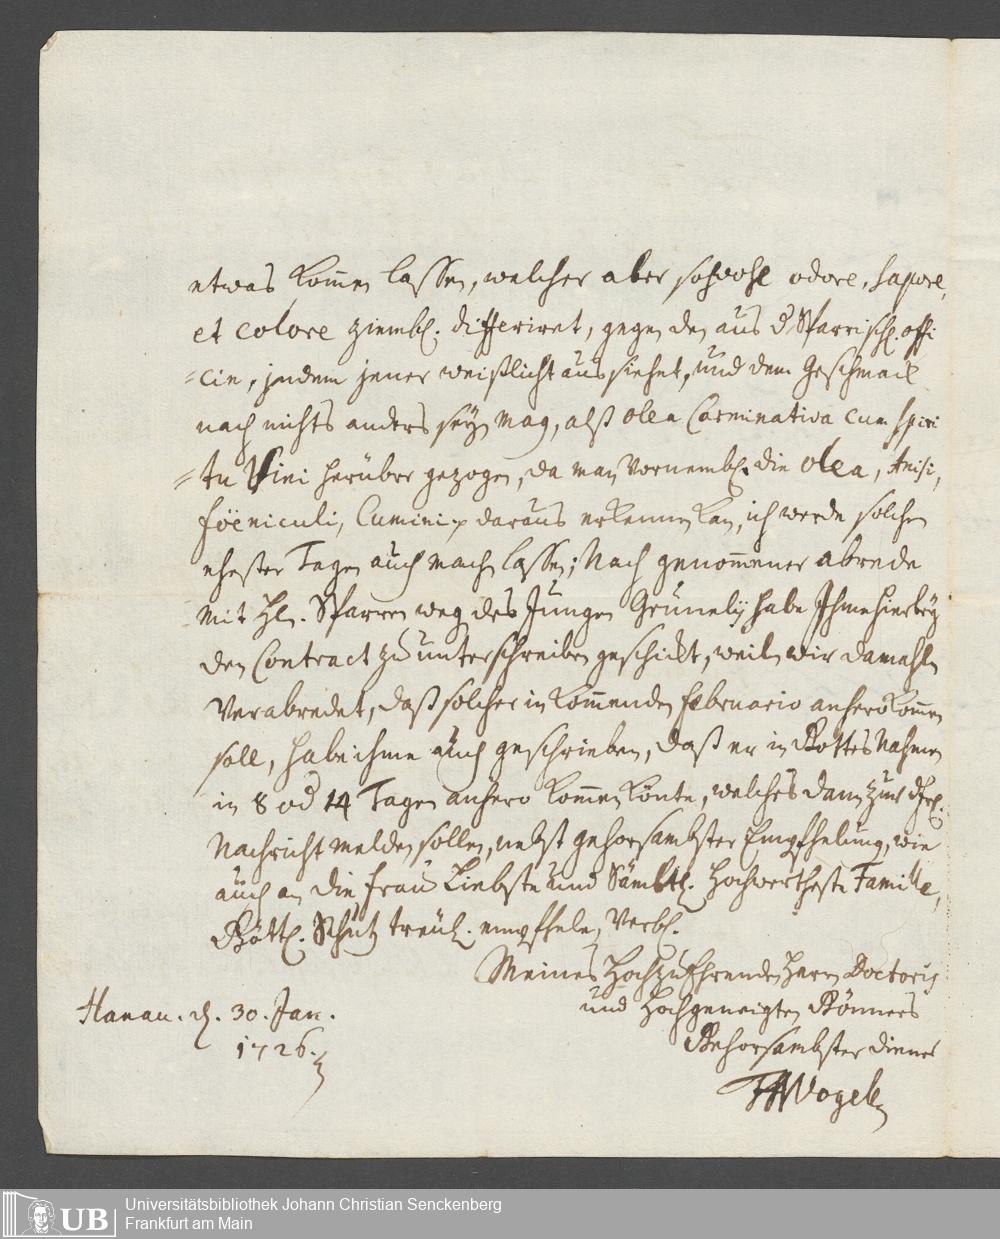 etwas kom̅en lassen, welcher aber sohwohl odore, sapore,
et colore ziembl. differiret, gegen den aus d Sparrischl. offi
=cin, indem jener weißlicht aussiehet, und dem Geschmack
nach nichts anders seyn mag, alß olea Carminativa cum spiri
=tu Vini herüber gezogen, da man Vornembl. die olea, Anisi,
foëniculi, Cumini p daraus erkennen kan, ich werde solchen
ehester Tagen auch machen lassen; Nach genom̅ener abrede
mit Hl. Sparren weg des Jungen Grünelij habe Ihme hierbey
den Contract zu unterschreiben geschickt, weiln wir damahln
Verabredet, daß solcher in kom̅enden februario anhero kom̅en
soll, habe ihme auch geschrieben, daß er in Gottes Nahmen
in 8 od 14 Tagen anhero kom̅en könte, welches dann zur
Nachricht melden sollen, nebst gehorsambster Empfhelung, wie
auch an die frau Liebste und Sämbtl. Hochwertheste Famille,
Göttl. Schutz treul. empfhele, Verbl.
Meines Hochzuehrenden Herrn Doctoris
und Hochgeneigten Gönners
Gehorsambster diener
Vogel
Hanau. d. 30. Jan.
1726.
UB
Universitätsbibliothek Johann Christian Senckenberg
Frankfurt am Main